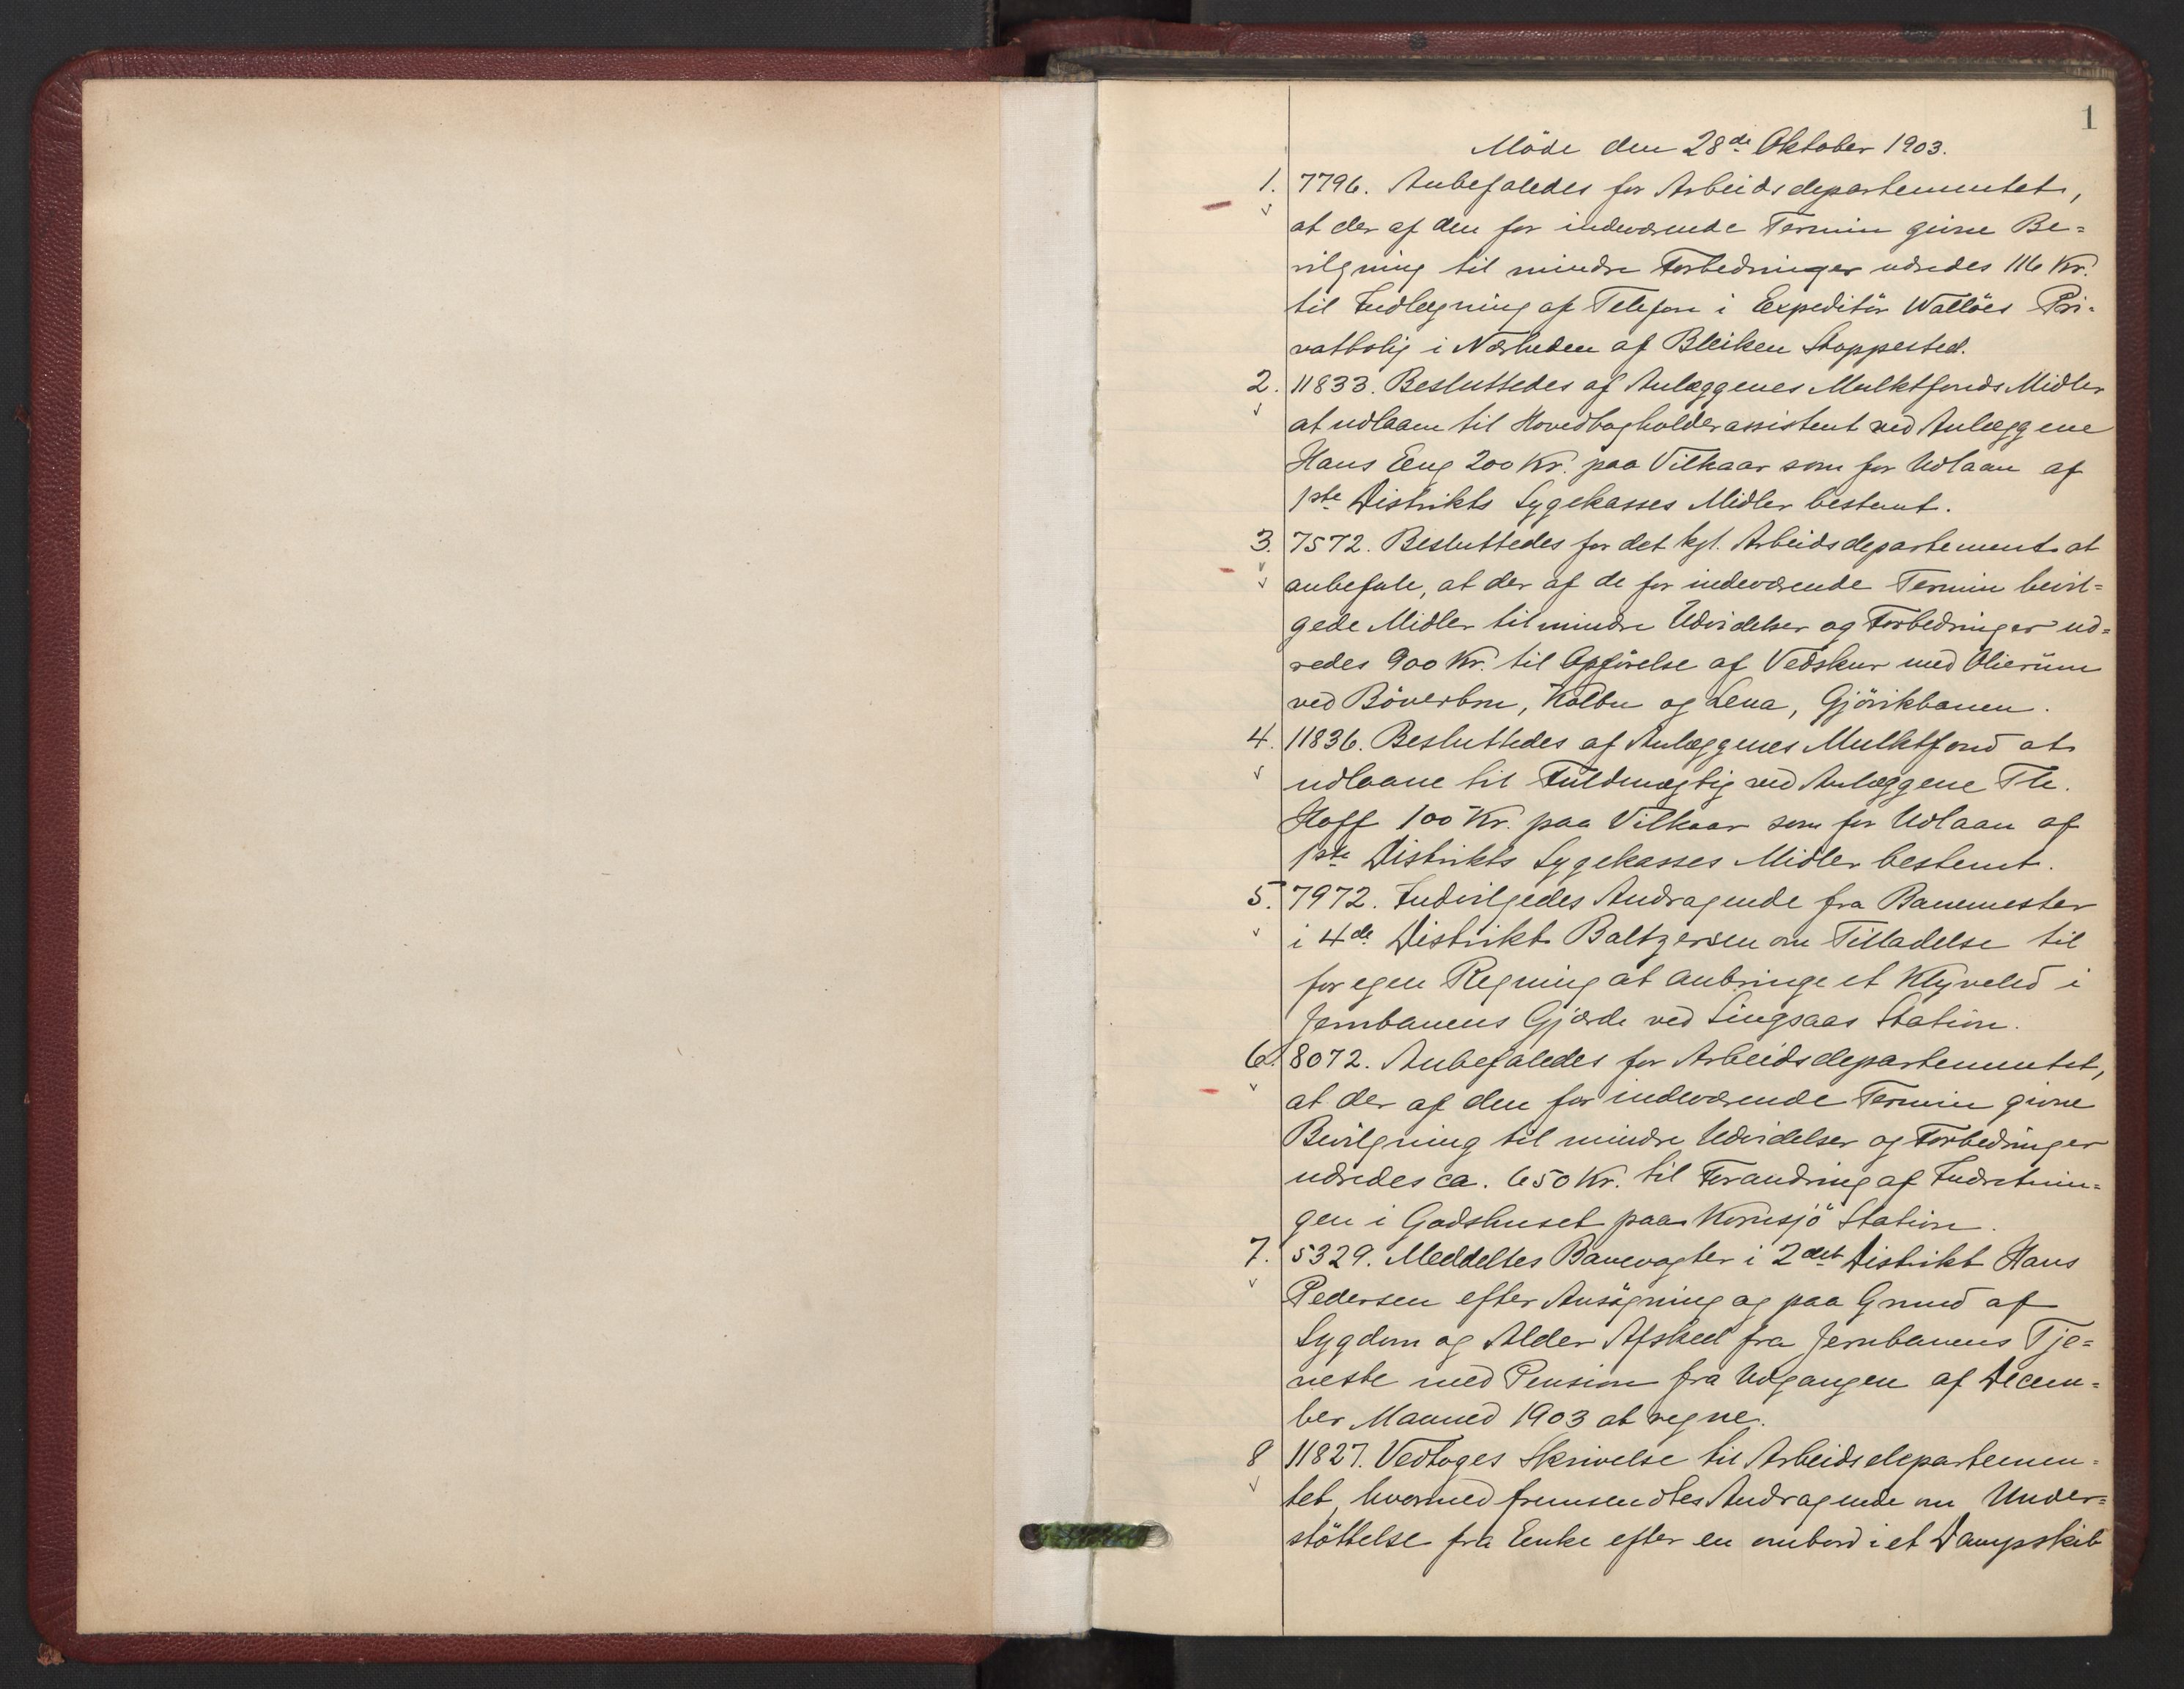 1
Möde den 28de Oktober 1903.
1. 7796. Anbefaledes for Arbeidsdepartementet,
at der af den for indeværende Termin givne Be=
vilgning til mindre Forbedringer udredes 116 Kr.
til Indlægning af Telefon i Expeditör Wallöes Pri-
vatbolig i Nærheden af Bleiken Stoppested.
2. 11833. Besluttedes af Anlæggenes Mulktfonds Midler
at udlaane til Hovedbogholderassistent ved Anlæggene
Hans Eeng 200 Kr. paa Vilkaar som for Udlaan af
1ste Distrikts Sygekasses Midler bestemt.
3. 7572. Besluttedes for det kgl. Arbeidsdepartement at
anbefale, at der af de for indeværende Termin bevil=
gede Midler til mindre Udvidelser og Forbedringer ud=
redes 900 Kr. til Opförelse af Vedskur med Olierum
ved Böverbru, Kolbu og Lena, Gjövikbanen.
4. 11836. Besluttedes af Anlæggenes Mulktfond at
udlaane til Fuldmægtig ved Anlæggene Th.
Hoff 100 Kr. paa Vilkaar som for Udlaan af
1ste Distrikts Sygekasses Midler bestemt.
5. 7972. Indvilgedes Andragende fra Banemester
i 4de Distrikt Baltzersen om Tilladelse til
for egen Regning at anbringe et Klyveled i
Jernbanens Gjærde ved Singsaas Station.
6. 8072. Anbefaledes for Arbeidsdepartementet,
at der af den for indeværende Termin givne
Bevilgning til mindre Udvidelser og Forbedringer
udredes ca. 650 Kr. til Forandring af Indretnin=
gen i Godshuset paa Kornsjö Station.
7. 5329. Meddeltes Banevogter i 2det Distrikt Hans
Pedersen efter Ansögning og paa Grund af
Sygdom og Alder Afsked fra Jernbanens Tje=
neste med Pension fra Udgangen af Decem=
ber Maaned 1903 at regne.
8 11827. Vedtoges Skrivelse til Arbeidsdepartemen=
tet, hvormed fremsendtes Andragende om Under=
stöttelse fra Enke efter en ombord i et Dampskib